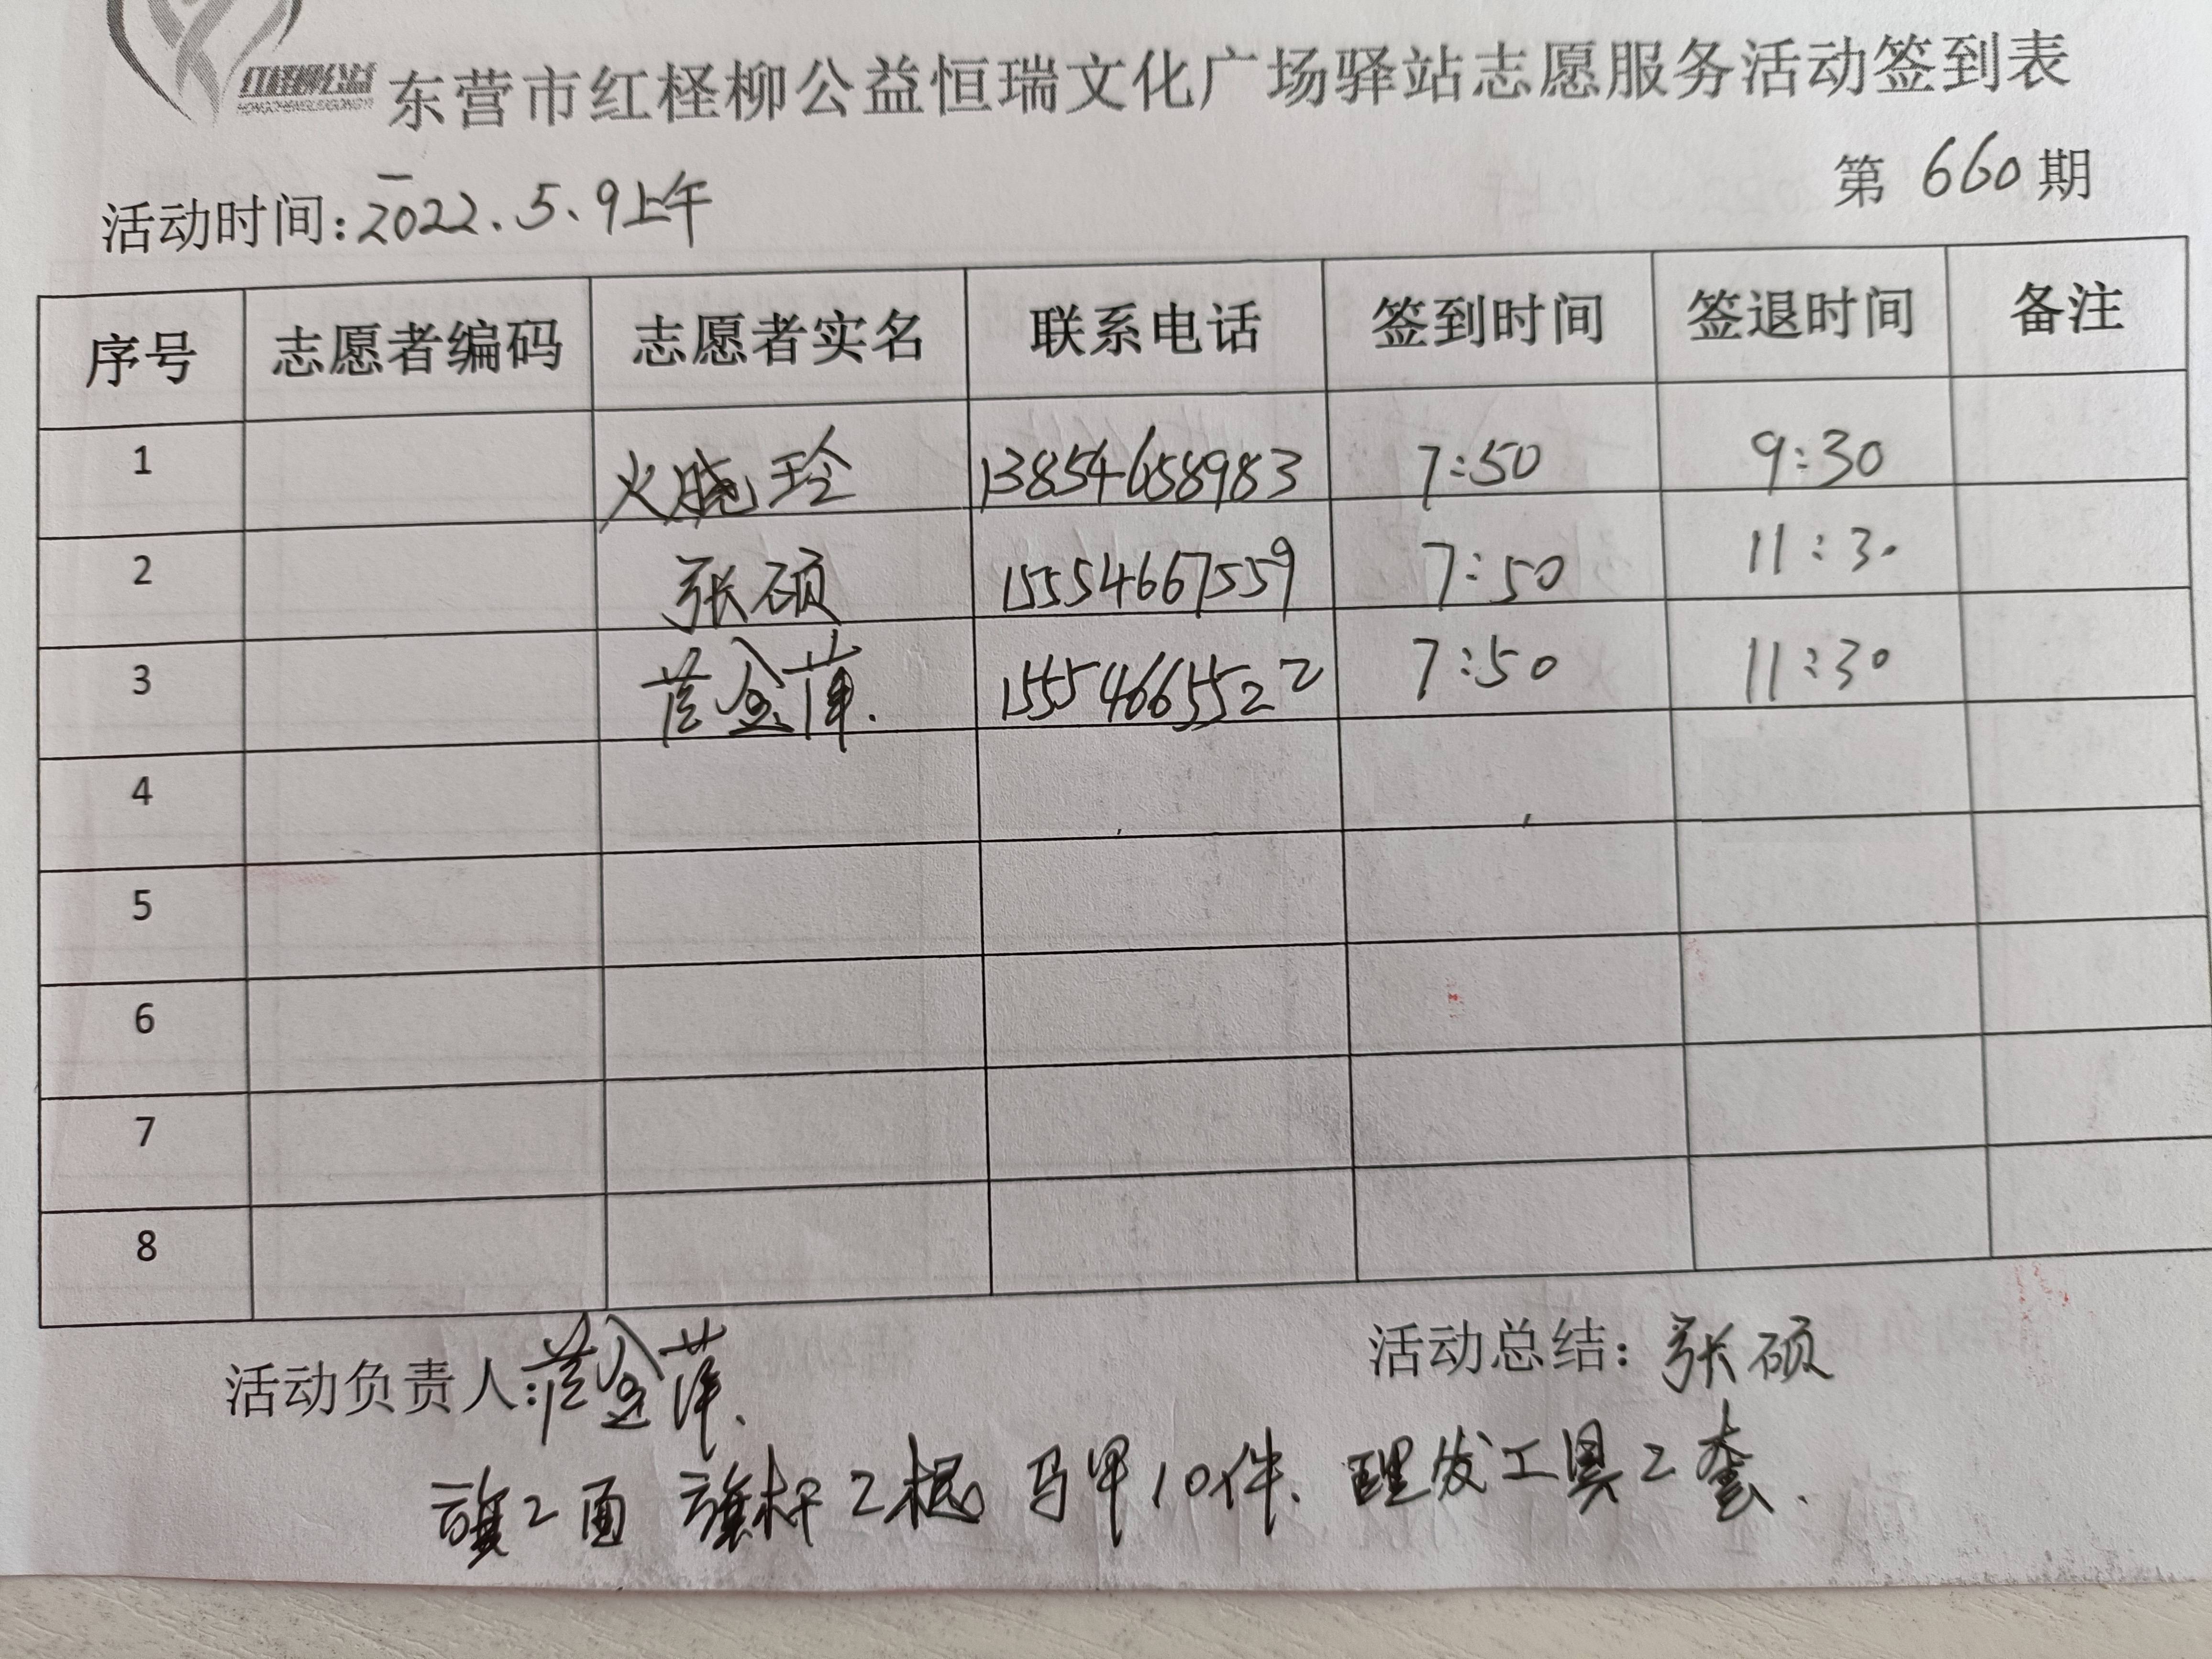 红柽柳公益
HONGCHENGLIUGONGYI
东营市红柽柳公益恒瑞文化广场驿站志愿服务活动签到表
第 660 期
活动时间:2022.5.9上午
序号 志愿者编码 志愿者实名 联系电话 签到时间 签退时间 备注
1 火晓玲 13854658983 7:50 9:30
2 张硕 15554667559 7:50 11:30
3 15554665522 7:50 11:30
4
5
6
7
8
活动负责人: 活动总结:张硕
旗2面 旗杆2根 马甲10件. 理发工具2套.